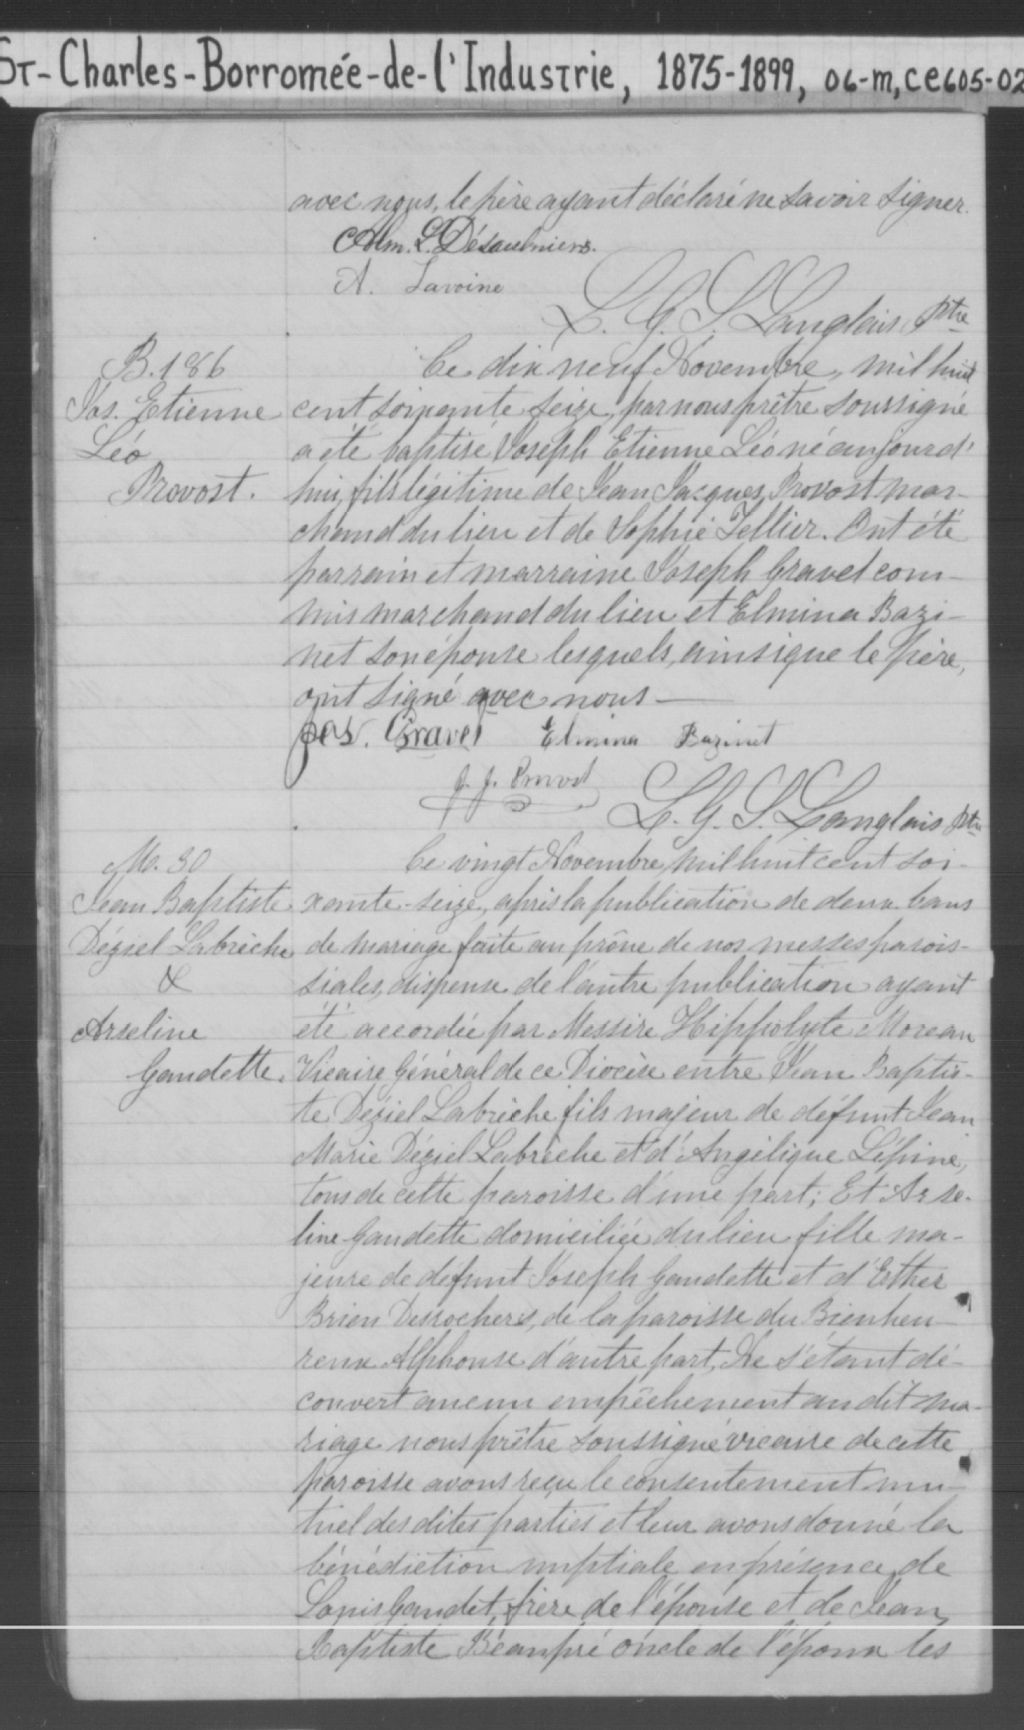 St-Charles-Borromée-de-l'Industrie, 1875-1899, 06-m, ce605-02
avec nous, le père ayant déclaré ne savoir signer.
Adm. L. Désaulniers.
A. Lavoine
L. G. S. Langlais, Ptre
B. 186
Jos. Etienne
Léo
Provost.
Ce dix neuf Novembre, mil huit
cent soixante seize, par nous prêtre soussigné
a été baptisé Joseph Etienne Léo né aujourd'
hui, fils légitime de Jean Jacques Provost mar-
chand du lieu et de Sophie Tellier. Ont été
parrain et marraine Joseph Gravel com-
mis marchand du lieu et Elmina Bazi-
net son épouse lesquels, ainsi que le père,
ont signé avec nous—
Jos. Gravel Elmina Bazinet
J. J. Provost
L. G. S. Langlais Ptre
M. 30
Jean Baptiste
Déziel Labrèche
&
Arseline
Gaudette.
Ce vingt Novembre, mil huit cent soi-
xante-seize, après la publication de deux bans
de mariage faite au prône de nos messes parois-
siales, dispense de l'autre publication ayant
été accordée par Messire Hippolyte Moreau
Vicaire Général de ce Diocèse entre Jean Baptis-
te Déziel Labrèche fils majeur de défunt Jean
Marie Déziel Labrèche et d'Angélique Lépine,
tous de cette paroisse d'une part; Et Arse-
line Gaudette domiciliée du lieu fille ma-
jeure de défunt Joseph Gaudette et d'Esther
Brien Desrochers, de la paroisse du Bienheu-
reux Alphonse d'autre part, Ne s'étant dé-
couvert aucun empêchement au dit ma-
riage nous prêtre soussigné vicaire de cette
paroisse avons reçu le consentement mu-
tuel des dites parties et leur avons donné la
bénédiction nuptiale en présence de
Louis Gaudet, frère de l'épouse et de Jean
Baptiste Beaupré oncle de l'époux les